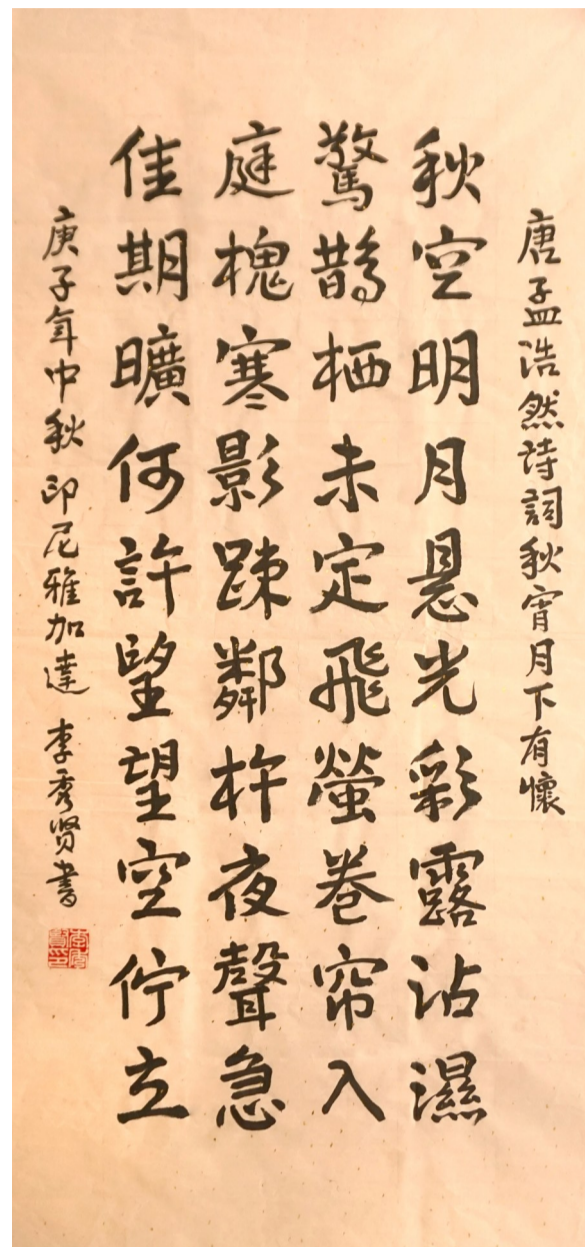 唐孟浩然诗詞秋宵月下有懷
秋空明月悬光彩露沾濕
驚鵲栖未定飛螢卷帘入
庭槐寒影疎鄰杵夜聲急
佳期曠何許望望空佇立
庚子年中秋印尼雅加達 李秀贤書